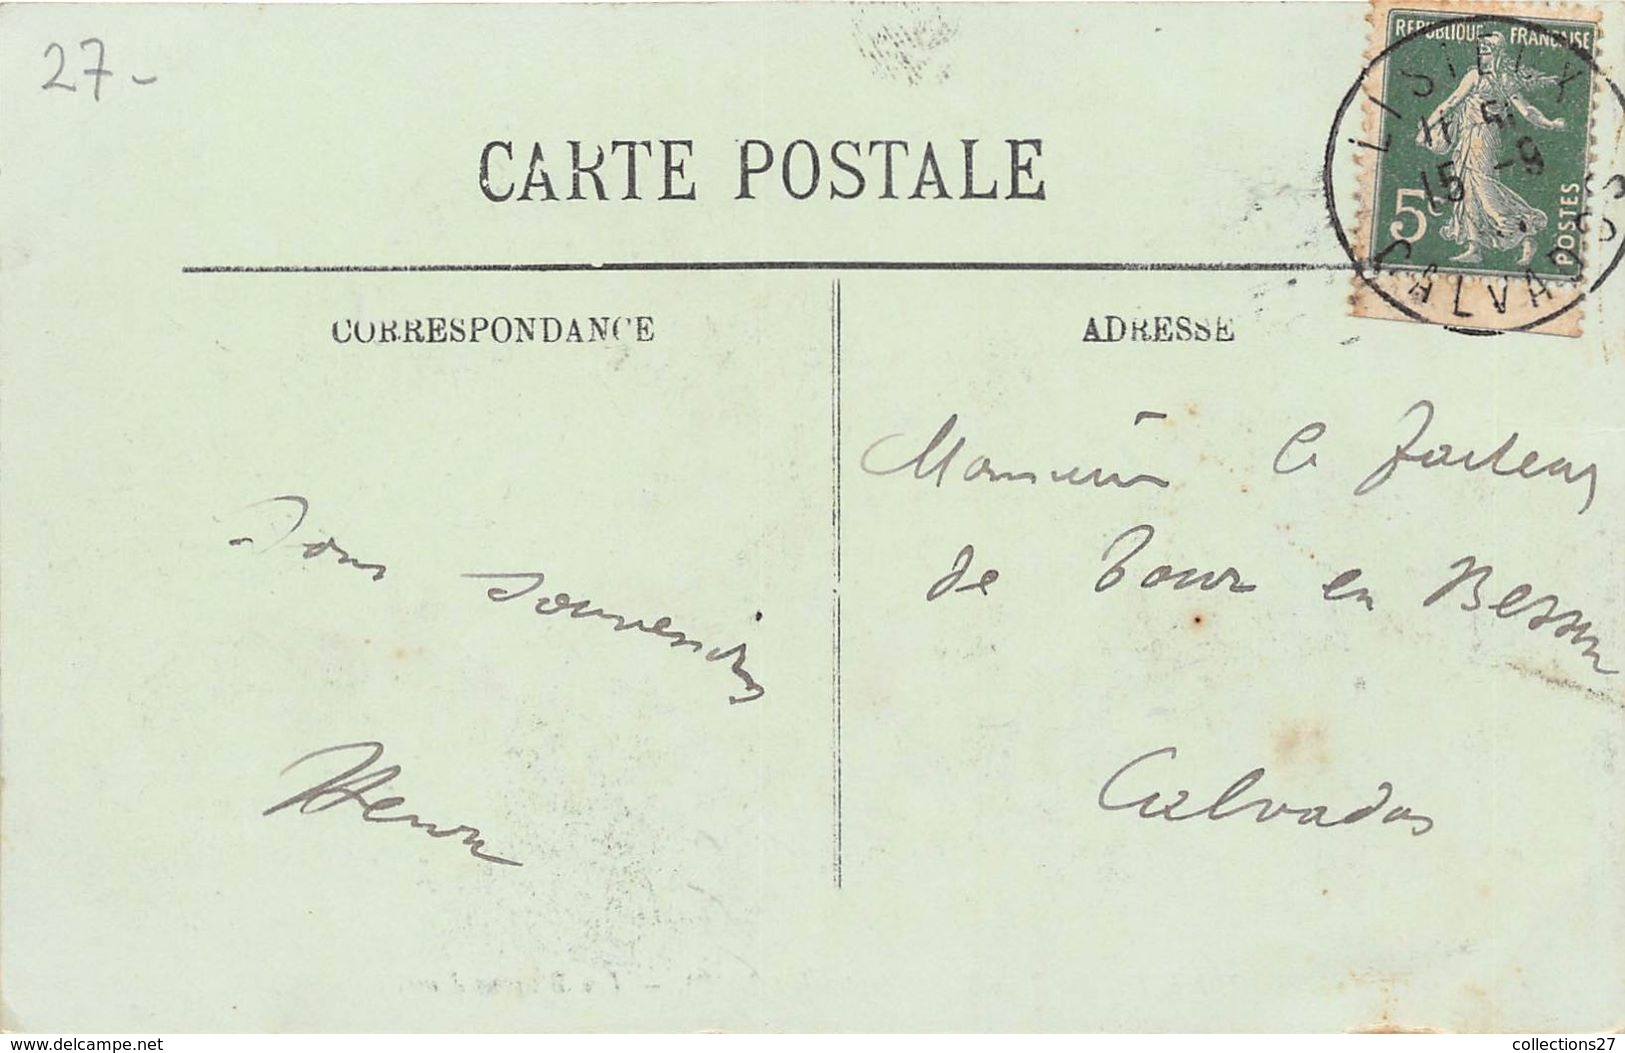 27-
CARTE POSTALE
REPUBLIQUE FRANÇAISE
5c
POSTES
LISIEUX
15 -9
CALVADOS
CORRESPONDANCE
ADRESSE
souvenirs
Henri
Monsieur le facteur
de Tour en Bessin
Calvados
www.delcampe.net
collections27